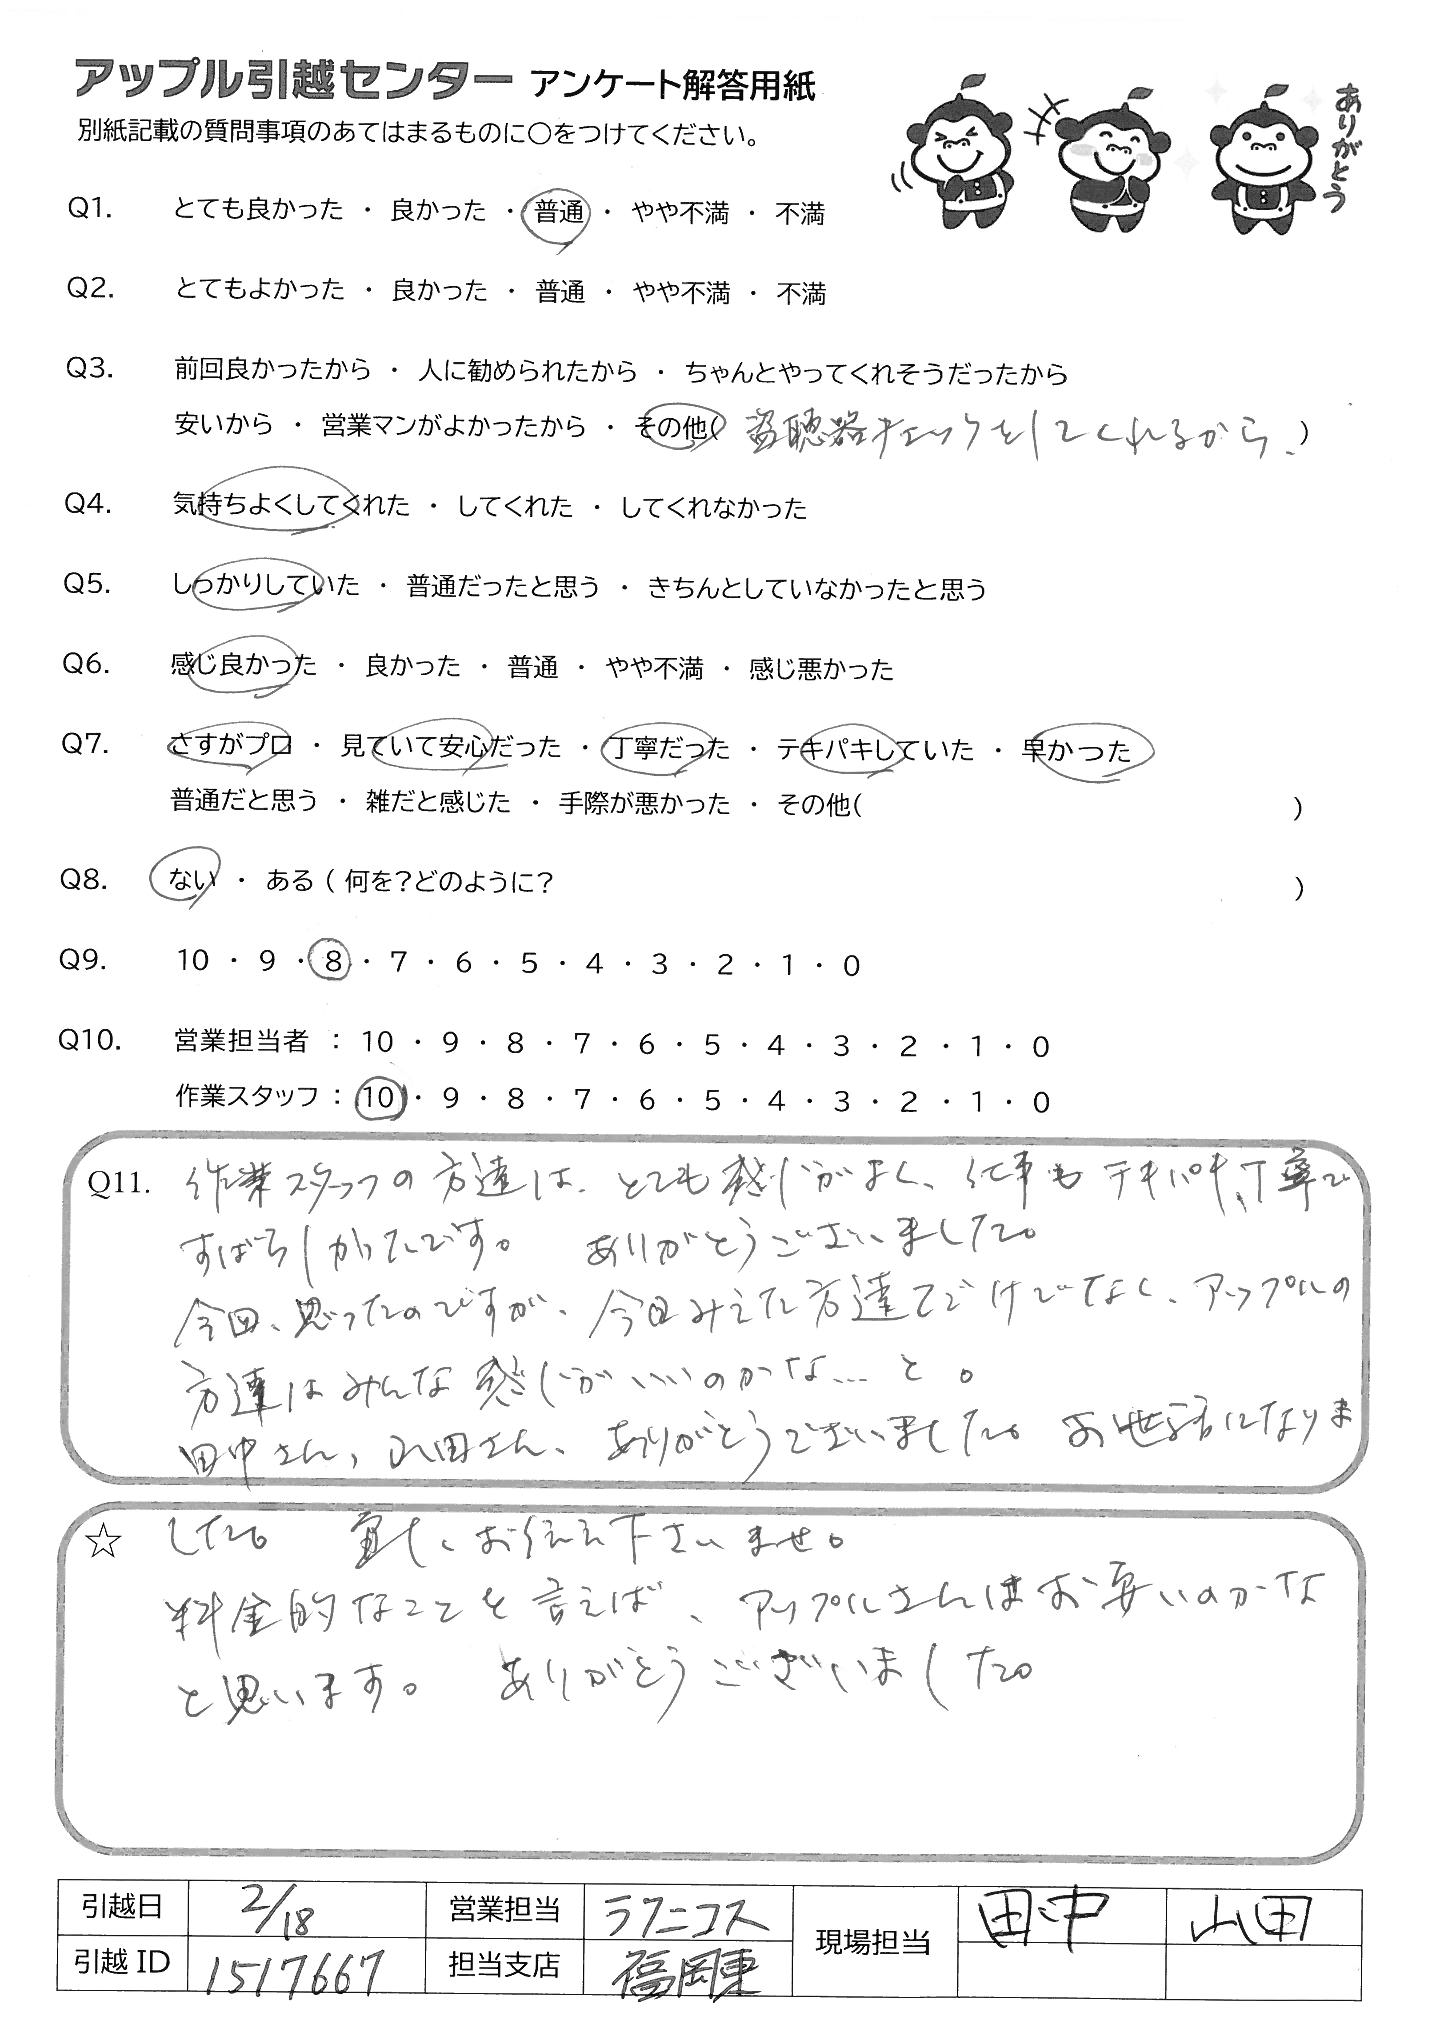 アップル引越センター アンケート解答用紙
ありがとう
別紙記載の質問事項のあてはまるものに○をつけてください。
Q1. とても良かった ・ 良かった ・ 普通 ・ やや不満 ・ 不満
Q2. とてもよかった ・ 良かった ・ 普通 ・ やや不満 ・ 不満
Q3. 前回良かったから ・ 人に勧められたから ・ ちゃんとやってくれそうだったから
安いから ・ 営業マンがよかったから ・ その他( 盗聴器チェックをしてくれるから、)
Q4. 気持ちよくしてくれた ・ してくれた ・ してくれなかった
Q5. しっかりしていた ・ 普通だったと思う ・ きちんとしていなかったと思う
Q6. 感じ良かった ・ 良かった ・ 普通 ・ やや不満 ・ 感じ悪かった
Q7. さすがプロ ・ 見ていて安心だった ・ 丁寧だった ・ テキパキしていた ・ 早かった
普通だと思う ・ 雑だと感じた ・ 手際が悪かった ・ その他( )
Q8. ない ・ ある ( 何を?どのように? )
Q9. 10 ・ 9 ・ 8 ・ 7 ・ 6 ・ 5 ・ 4 ・ 3 ・ 2 ・ 1 ・ 0
Q10. 営業担当者 : 10 ・ 9 ・ 8 ・ 7 ・ 6 ・ 5 ・ 4 ・ 3 ・ 2 ・ 1 ・ 0
作業スタッフ : 10 ・ 9 ・ 8 ・ 7 ・ 6 ・ 5 ・ 4 ・ 3 ・ 2 ・ 1 ・ 0
Q11. 作業スタッフの方達は、とても感じがよく、仕事もテキパキ、丁寧で
すばらしかったです。 ありがとうございました。
今回、思ったのですが、今回みえた方達だけでなく、アップルの
方達はみんな感じがいいのかな… と。
田中さん、山田さん、ありがとうございました。お世話になりま
☆ した。 宜しくお伝え下さいませ。
料金的なことを言えば、アップルさんはお安いのかな
と思います。 ありがとうございました。
引越日 2/18 営業担当 ラクニコス 現場担当 田中 山田
引越 ID 1517667 担当支店 福岡東